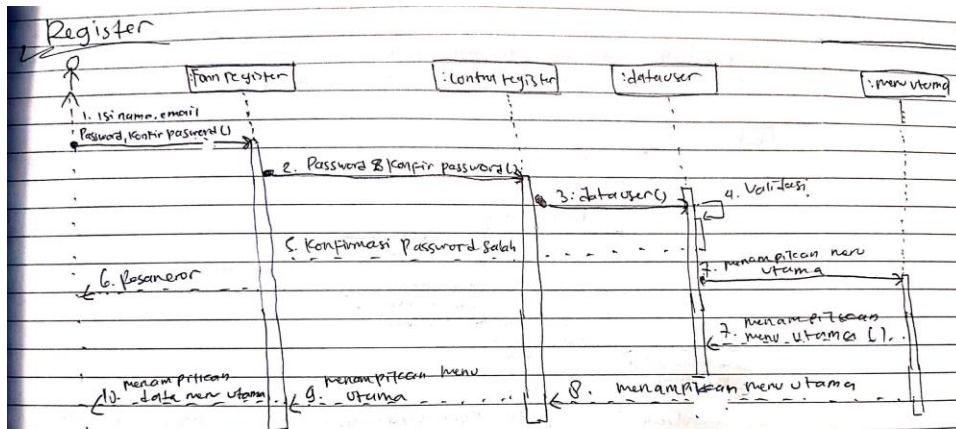 Register
:Form register
:Control register
:datauser
:menu utama
1. Isi name, email
Password, konfir password ()
2. Password & Konfir password ()
3: datauser()
4. Validasi
5. Konfirmasi Password Salah
6. Pesan eror
7. menampilkan menu
utama
7. menampilkan
menu utama ().
8. menampilkan menu utama
9. menampilkan menu
utama
10. menampilkan
data menu utama